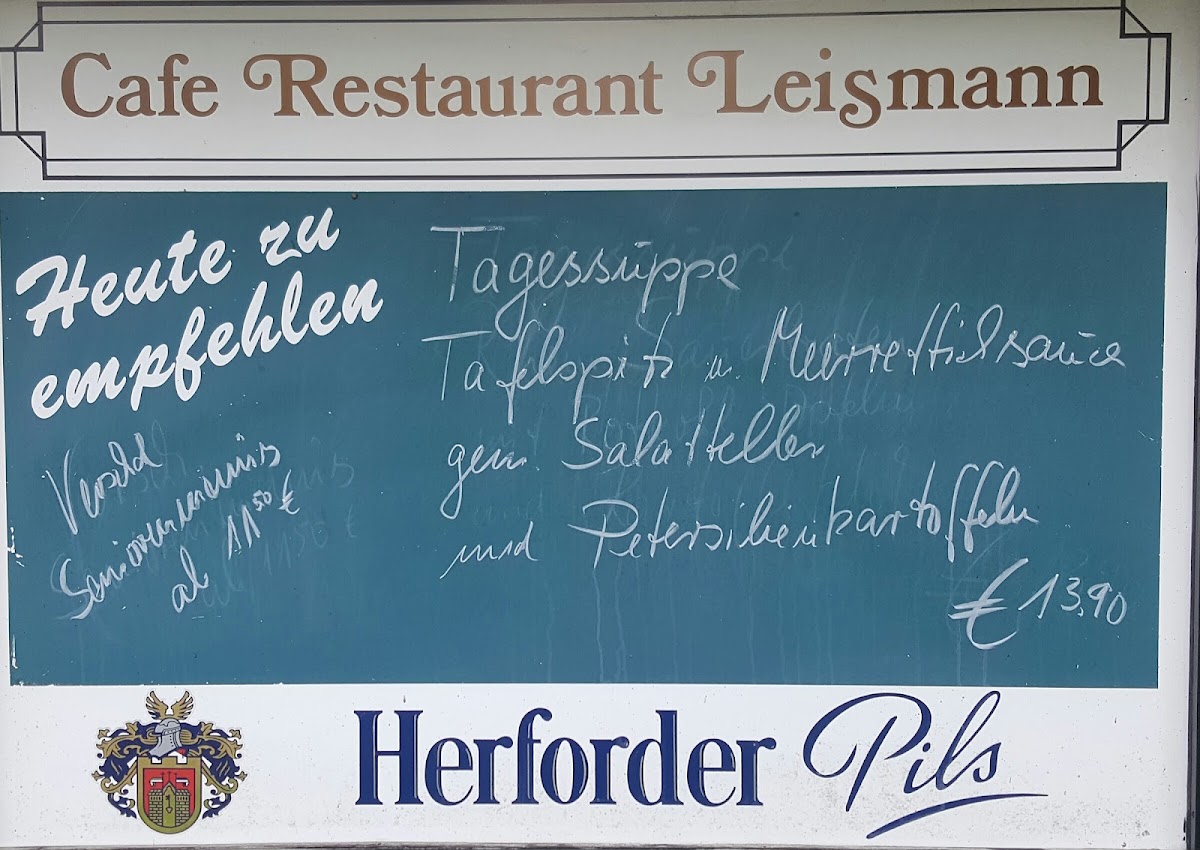 Cafe Restaurant Leismann
Heute zu
empfehlen
Tagessuppe
Tafelspitz m. Meerrettichsauce
gem. Salatteller
und Petersilienkartoffeln
€ 13,90
ab 11⁵⁰ €
Herforder Pils